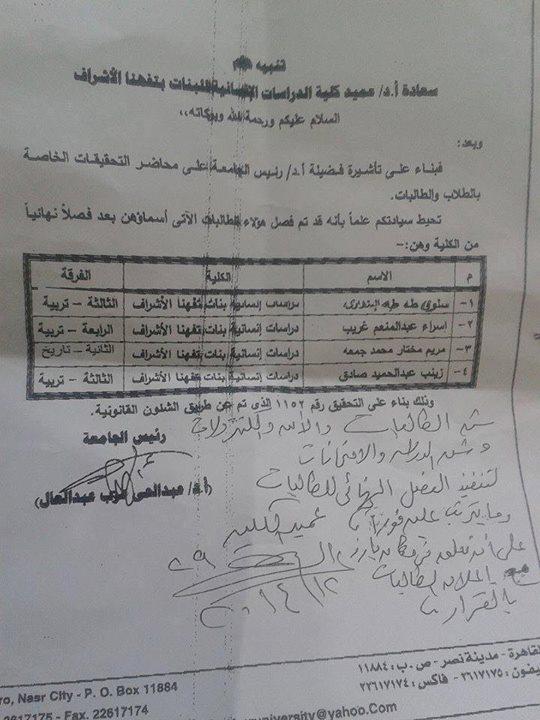 تنبيه هام
سعادة أ.د/ عميد كلية الدراسات الإنسانية للبنات بتفهنا الأشراف
السلام عليكم ورحمة الله وبركاته،،
وبعد:
فبناء على تأشيرة فضيلة أ.د/ رئيس الجامعة على محاضر التحقيقات الخاصة
بالطلاب والطالبات.
نحيط سيادتكم علماً بأنه قد تم فصل هؤلاء الطالبات الآتى أسماؤهن بعد فصلاً نهائياً
من الكلية وهن:-
م الاسم الكلية الفرقة
١- سلوى طه طه دراسات إنسانية بنات تفهنا الأشراف الثالثة - تربية
٢- اسراء عبدالمنعم غريب دراسات إنسانية بنات تفهنا الأشراف الرابعة - تربية
٣- مريم مختار محمد جمعه دراسات إنسانية بنات تفهنا الأشراف الثانية - تاريخ
٤- زينب عبدالحميد صادق دراسات إنسانية بنات تفهنا الأشراف الثالثة - تربية
وذلك بناء على التحقيق رقم ١١٥٢ الذى تم عن طريق الشئون القانونية.
رئيس الجامعة
(أ.د/ عبدالحى عزب عبدالعال)
شئون الطالبات والأمن
وشئون الدراسة والامتحانات
لتنفيذ الفصل النهائى للطالبات
وما يترتب عليه فوراً
عميد الكلية
على أن تعلق فى مكان بارز
بإعلان الطالبات
بالقرار
٢٠١٤/١٢/٢٩
القاهرة - مدينة نصر - ص.ب: ١١٨٨٤
٢٦١٧١٧٥ - فاكس: ٢٢٦١٧١٧٤
ro, Nasr City - P. O. Box 11884
2617175 - Fax. 22617174
university@yahoo.com